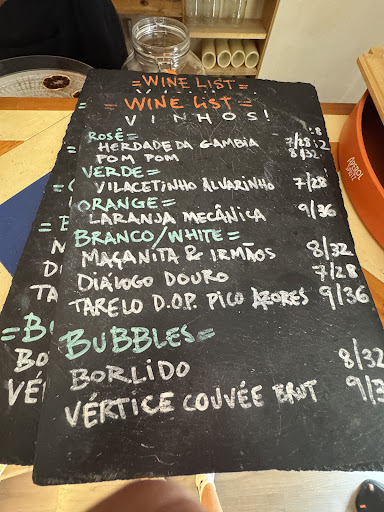 =WINE LIST=
=WINE LIST=
VINHOS!
ROSÊ=
HERDADE DA GAMBIA 7/28
POM POM 8/32
VERDE=
VILACETINHO ALVARINHO 7/28
ORANGE=
LARANJA MECÂNICA 9/36
BRANCO/WHITE=
MAÇANITA & IRMÃOS 8/32
DIÁLOGO DOURO 7/28
TARELO D.O.P. PICO AZORES 9/36
BUBBLES=
BORLIDO 8/32
VÉRTICE COUVÉE BRUT